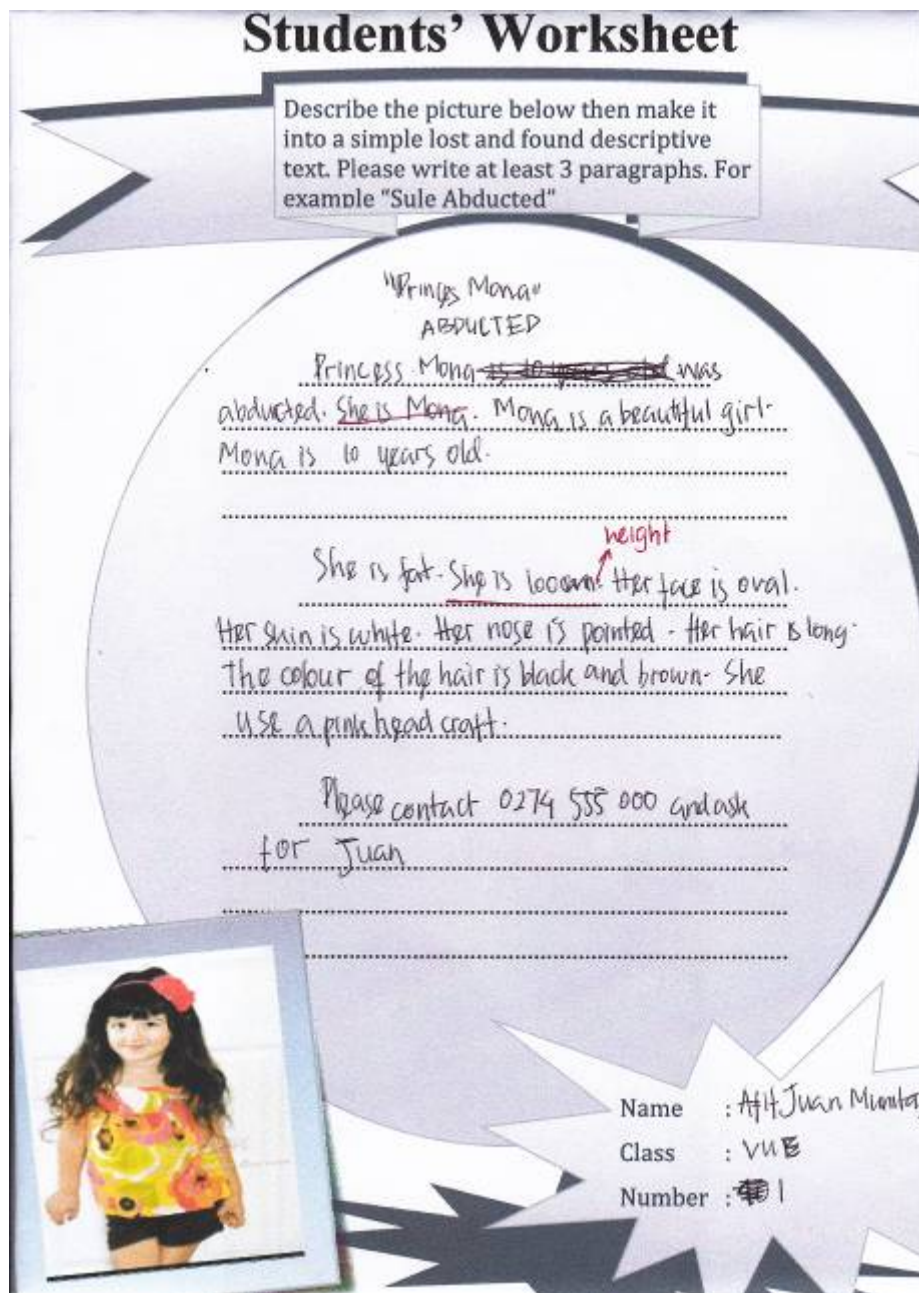 Students' Worksheet
Describe the picture below then make it
into a simple lost and found descriptive
text. Please write at least 3 paragraphs. For
example "Sule Abducted"
"Princes Mona"
ABDUCTED
Princess Mona is 10 years old was
abducted. She is Mona. Mona is a beautiful girl.
Mona is 10 years old.
height
She is fat. She is 100cm. Her face is oval.
Her skin is white. Her nose is pointed. Her hair is long.
The colour of the hair is black and brown. She
use a pink head craft.
Please contact 0274 555 000 and ask
for Juan
Name : Afif Juan
Class : VII E
Number : 1